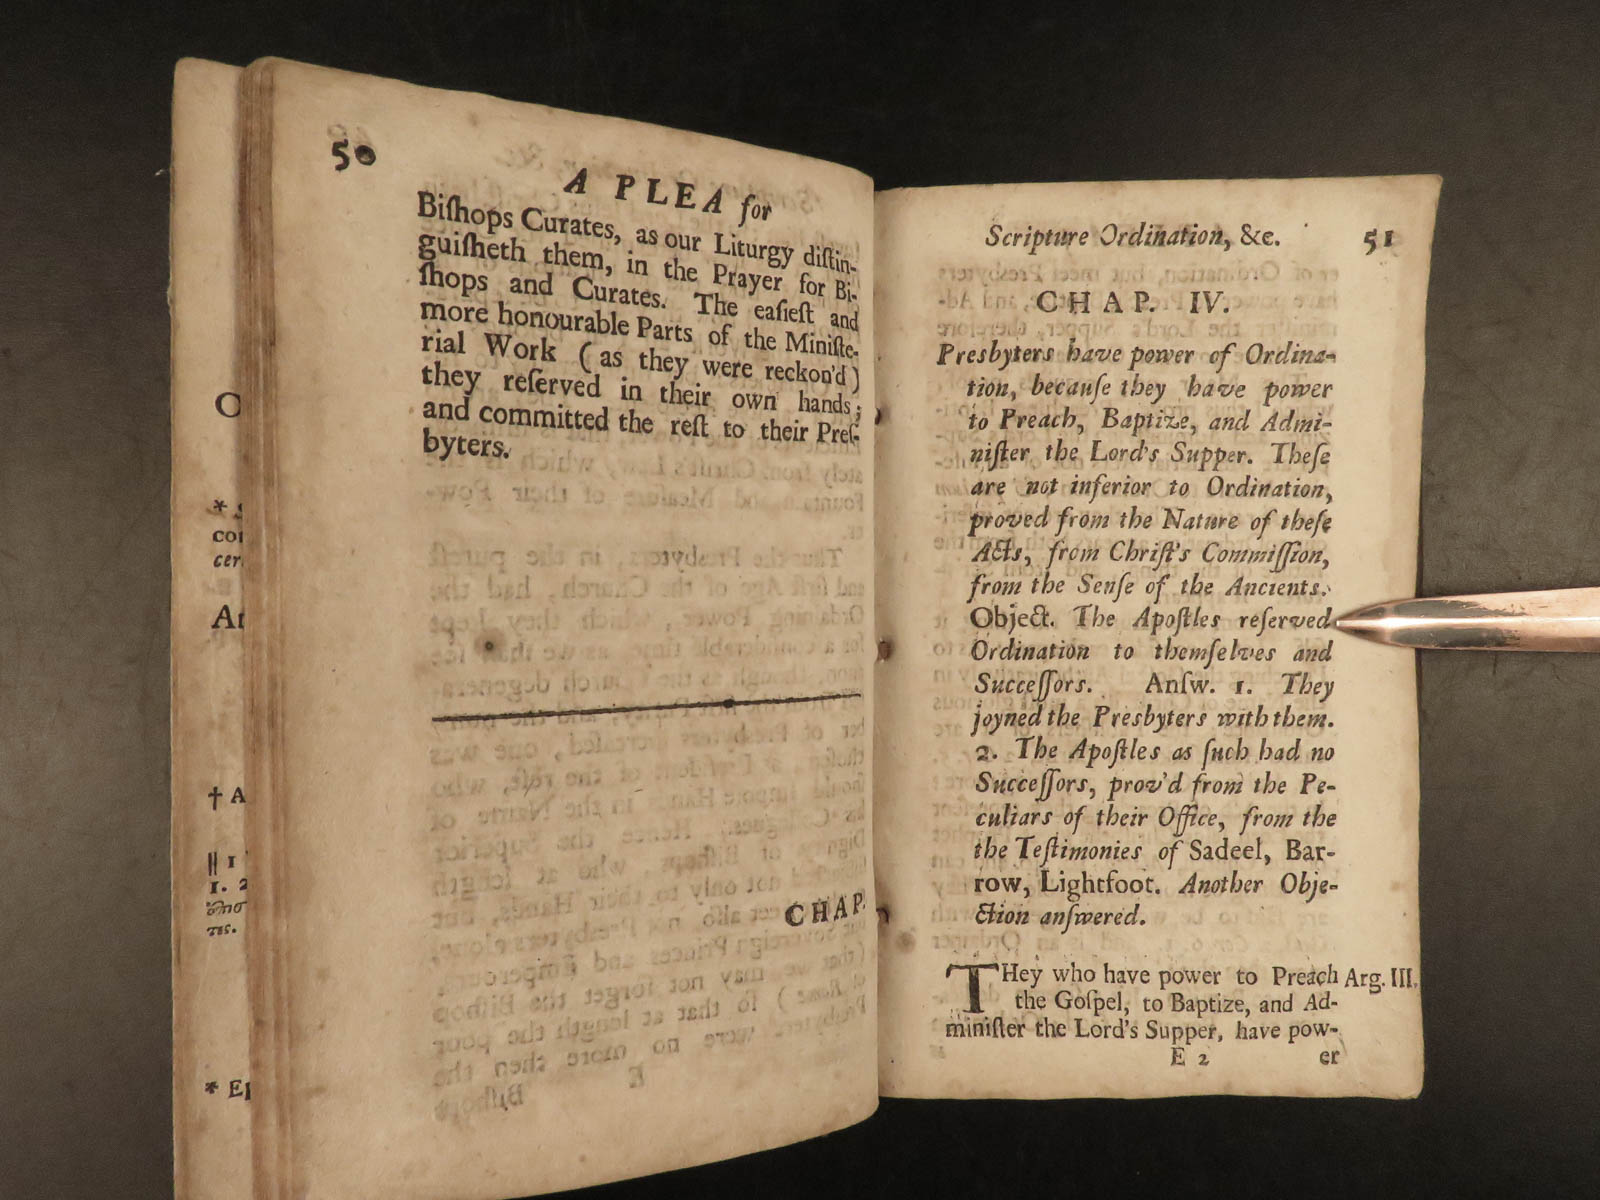 50
A PLEA for
Biſhops Curates, as our Liturgy diſtin-
guiſheth them, in the Prayer for Bi-
ſhops and Curates. The eaſieſt and
more honourable Parts of the Miniſte-
rial Work ( as they were reckon'd )
they reſerved in their own hands;
and committed the reſt to their Preſ-
byters.
CHAP.
Scripture Ordination, &c. 51
CHAP. IV.
Presbyters have power of Ordina-
tion, becauſe they have power
to Preach, Baptize, and Admi-
niſter the Lord's Supper. Theſe
are not inferior to Ordination,
proved from the Nature of theſe
Acts, from Chriſt's Commiſſion,
from the Senſe of the Ancients.
Object. The Apoſtles reſerved
Ordination to themſelves and
Succeſſors. Anſw. 1. They
joyned the Presbyters with them.
2. The Apoſtles as ſuch had no
Succeſſors, prov'd from the Pe-
culiars of their Office, from the
the Teſtimonies of Sadeel, Bar-
row, Lightfoot. Another Obje-
ction anſwered.
THey who have power to Preach Arg. III.
the Goſpel, to Baptize, and Ad-
miniſter the Lord's Supper, have pow-
E 2 er